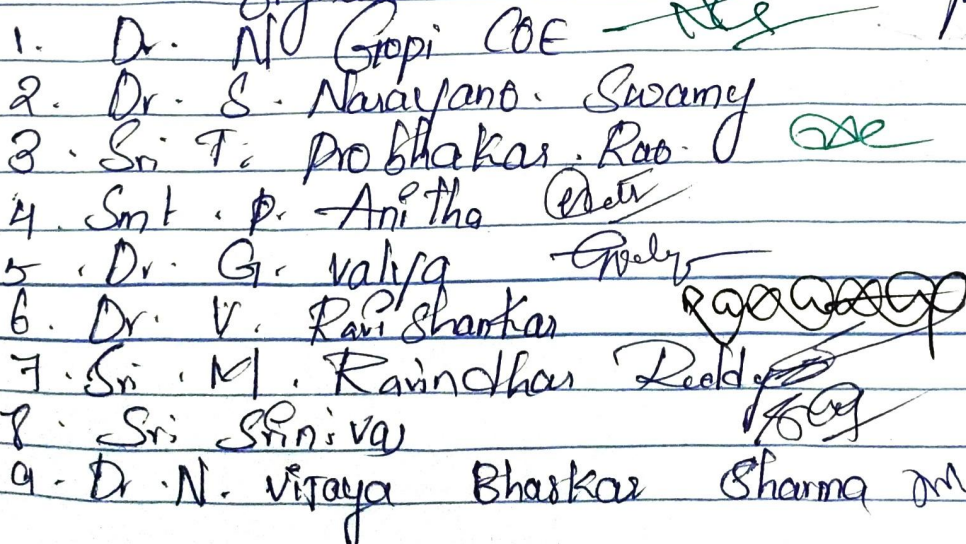 1. Dr. N Gopi COE
2. Dr. S. Narayana. Swamy
3. Sri T. Prabhakar. Rao.
4. Smt. P. Anitha
5. Dr. G. Valya
6. Dr. V. Ravi Shankar
7. Sri. M. Ravindhar Reddy
8. Sri Srinivas
9. Dr. N. Vijaya Bhaskar Sharma